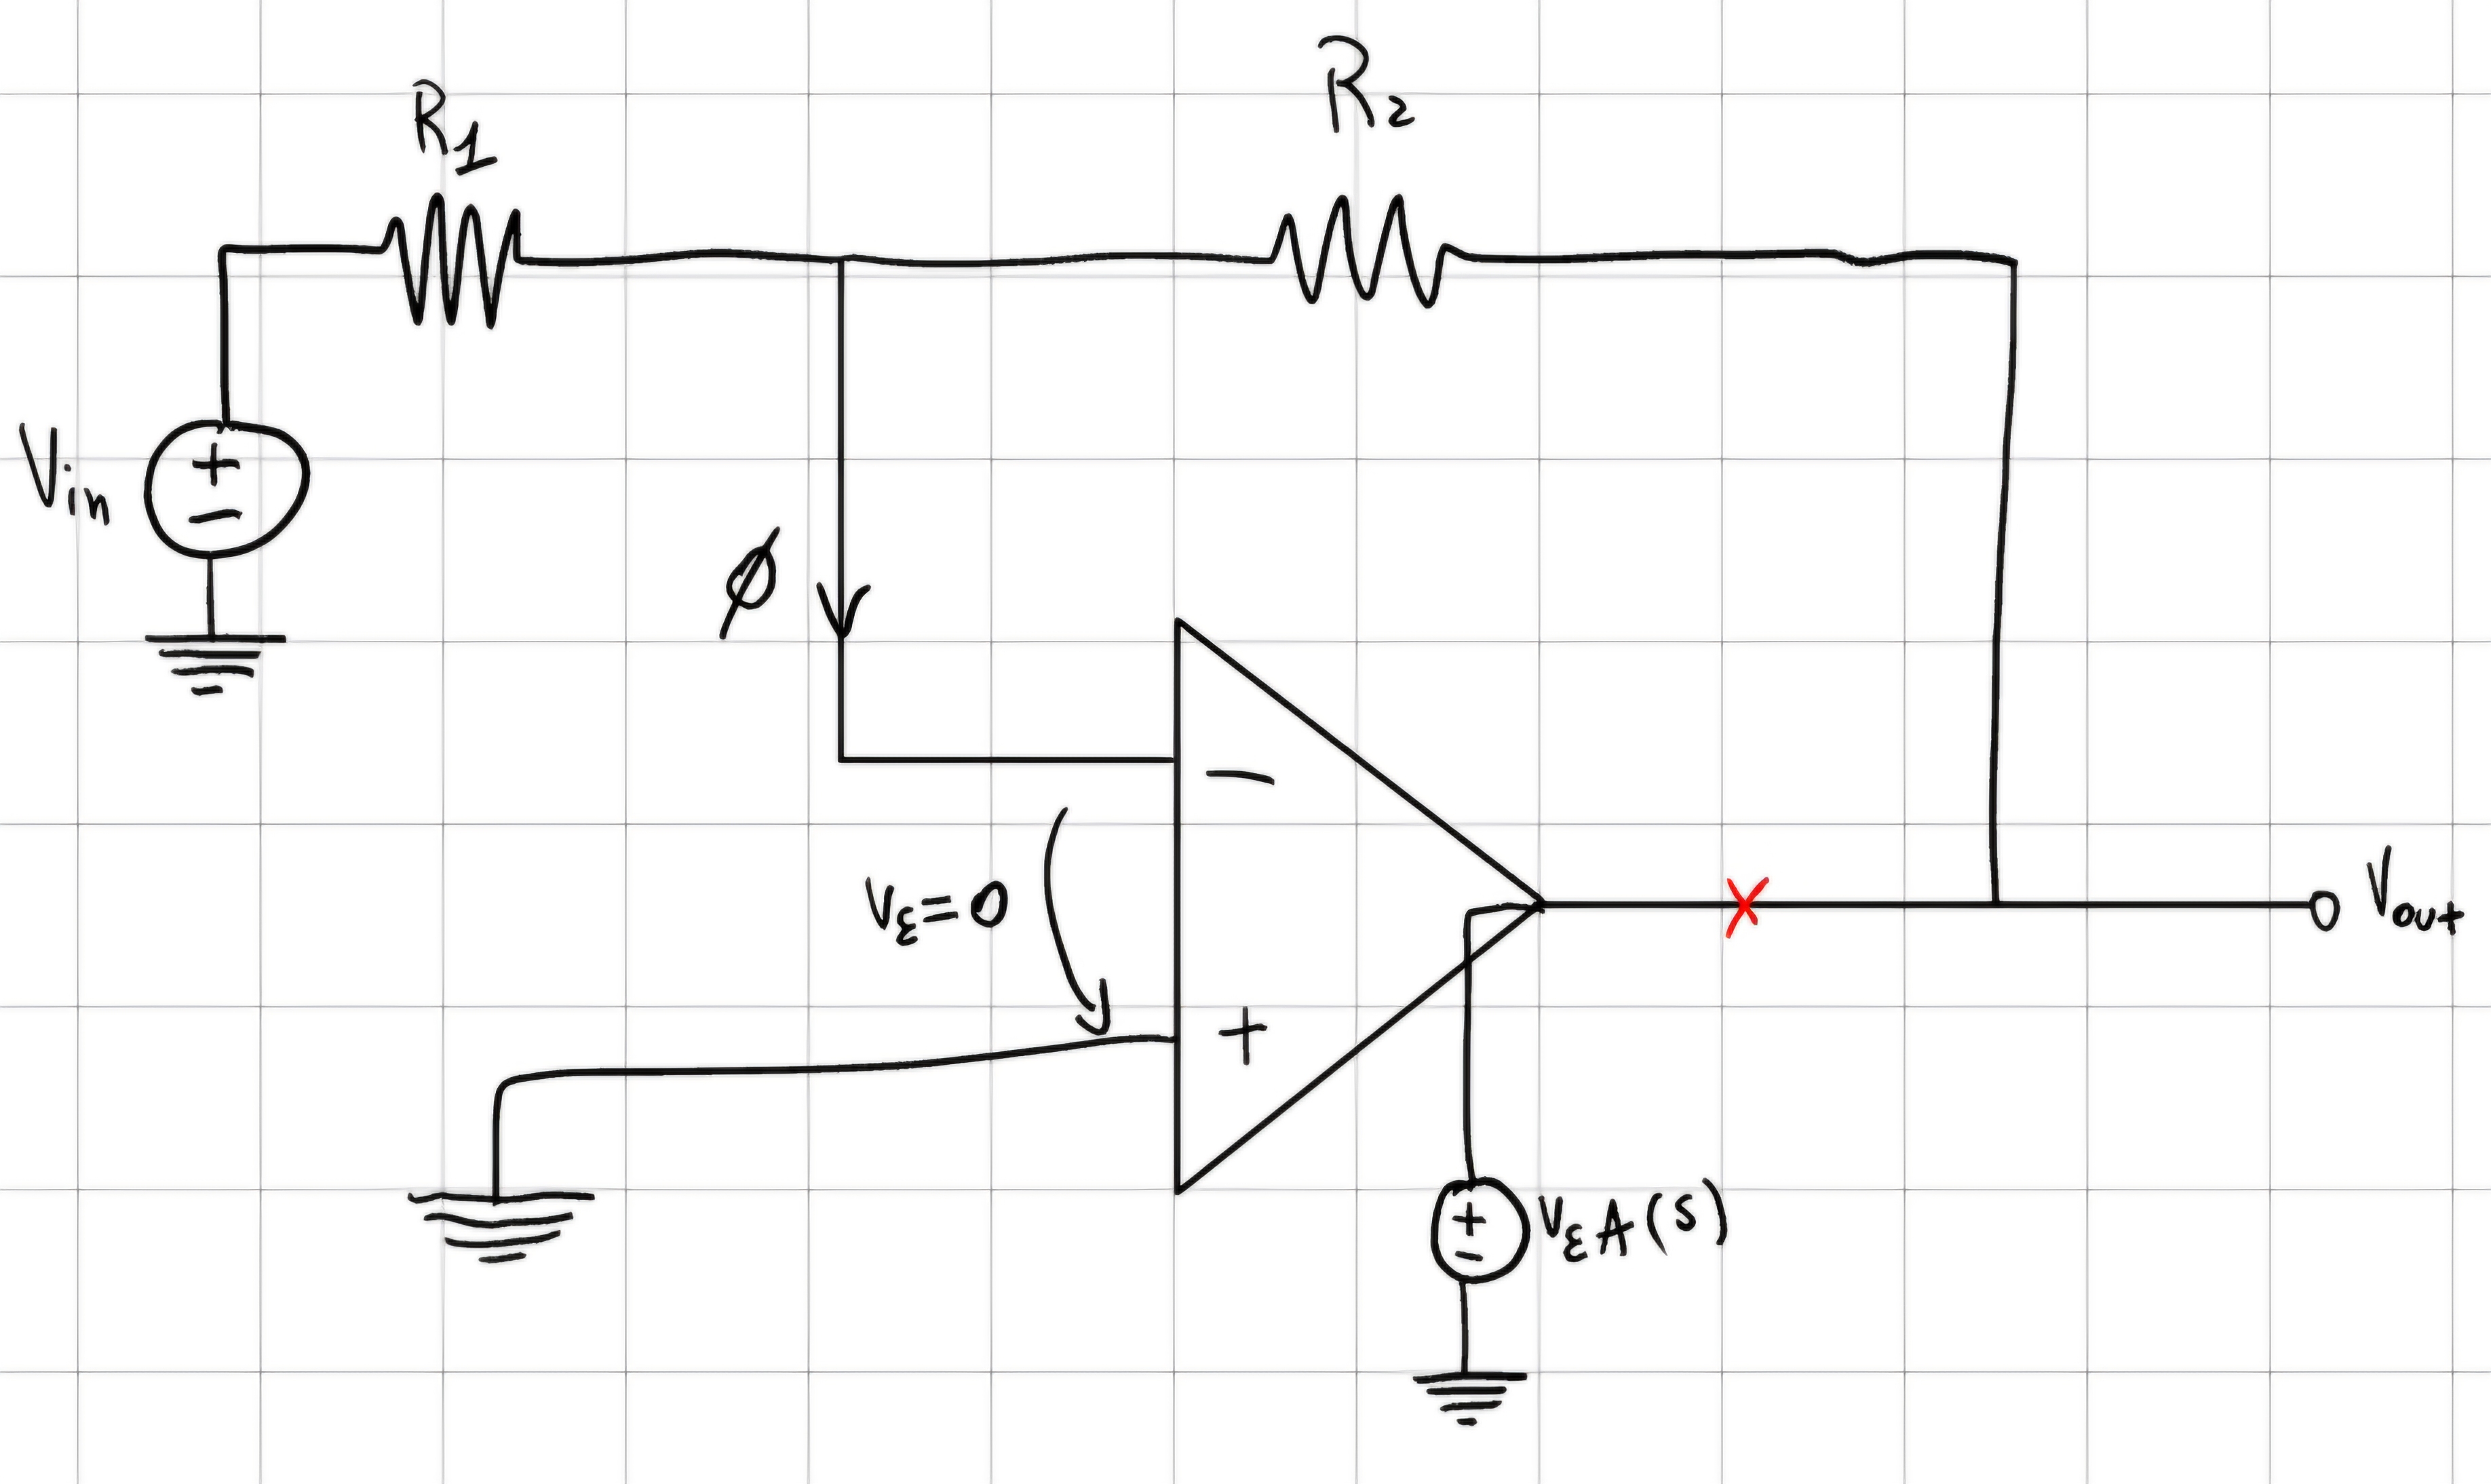 R₁
R₂
Vin
+
−
Ø
−
Vε=0
+
X
Vout
+
−
VεA(s)